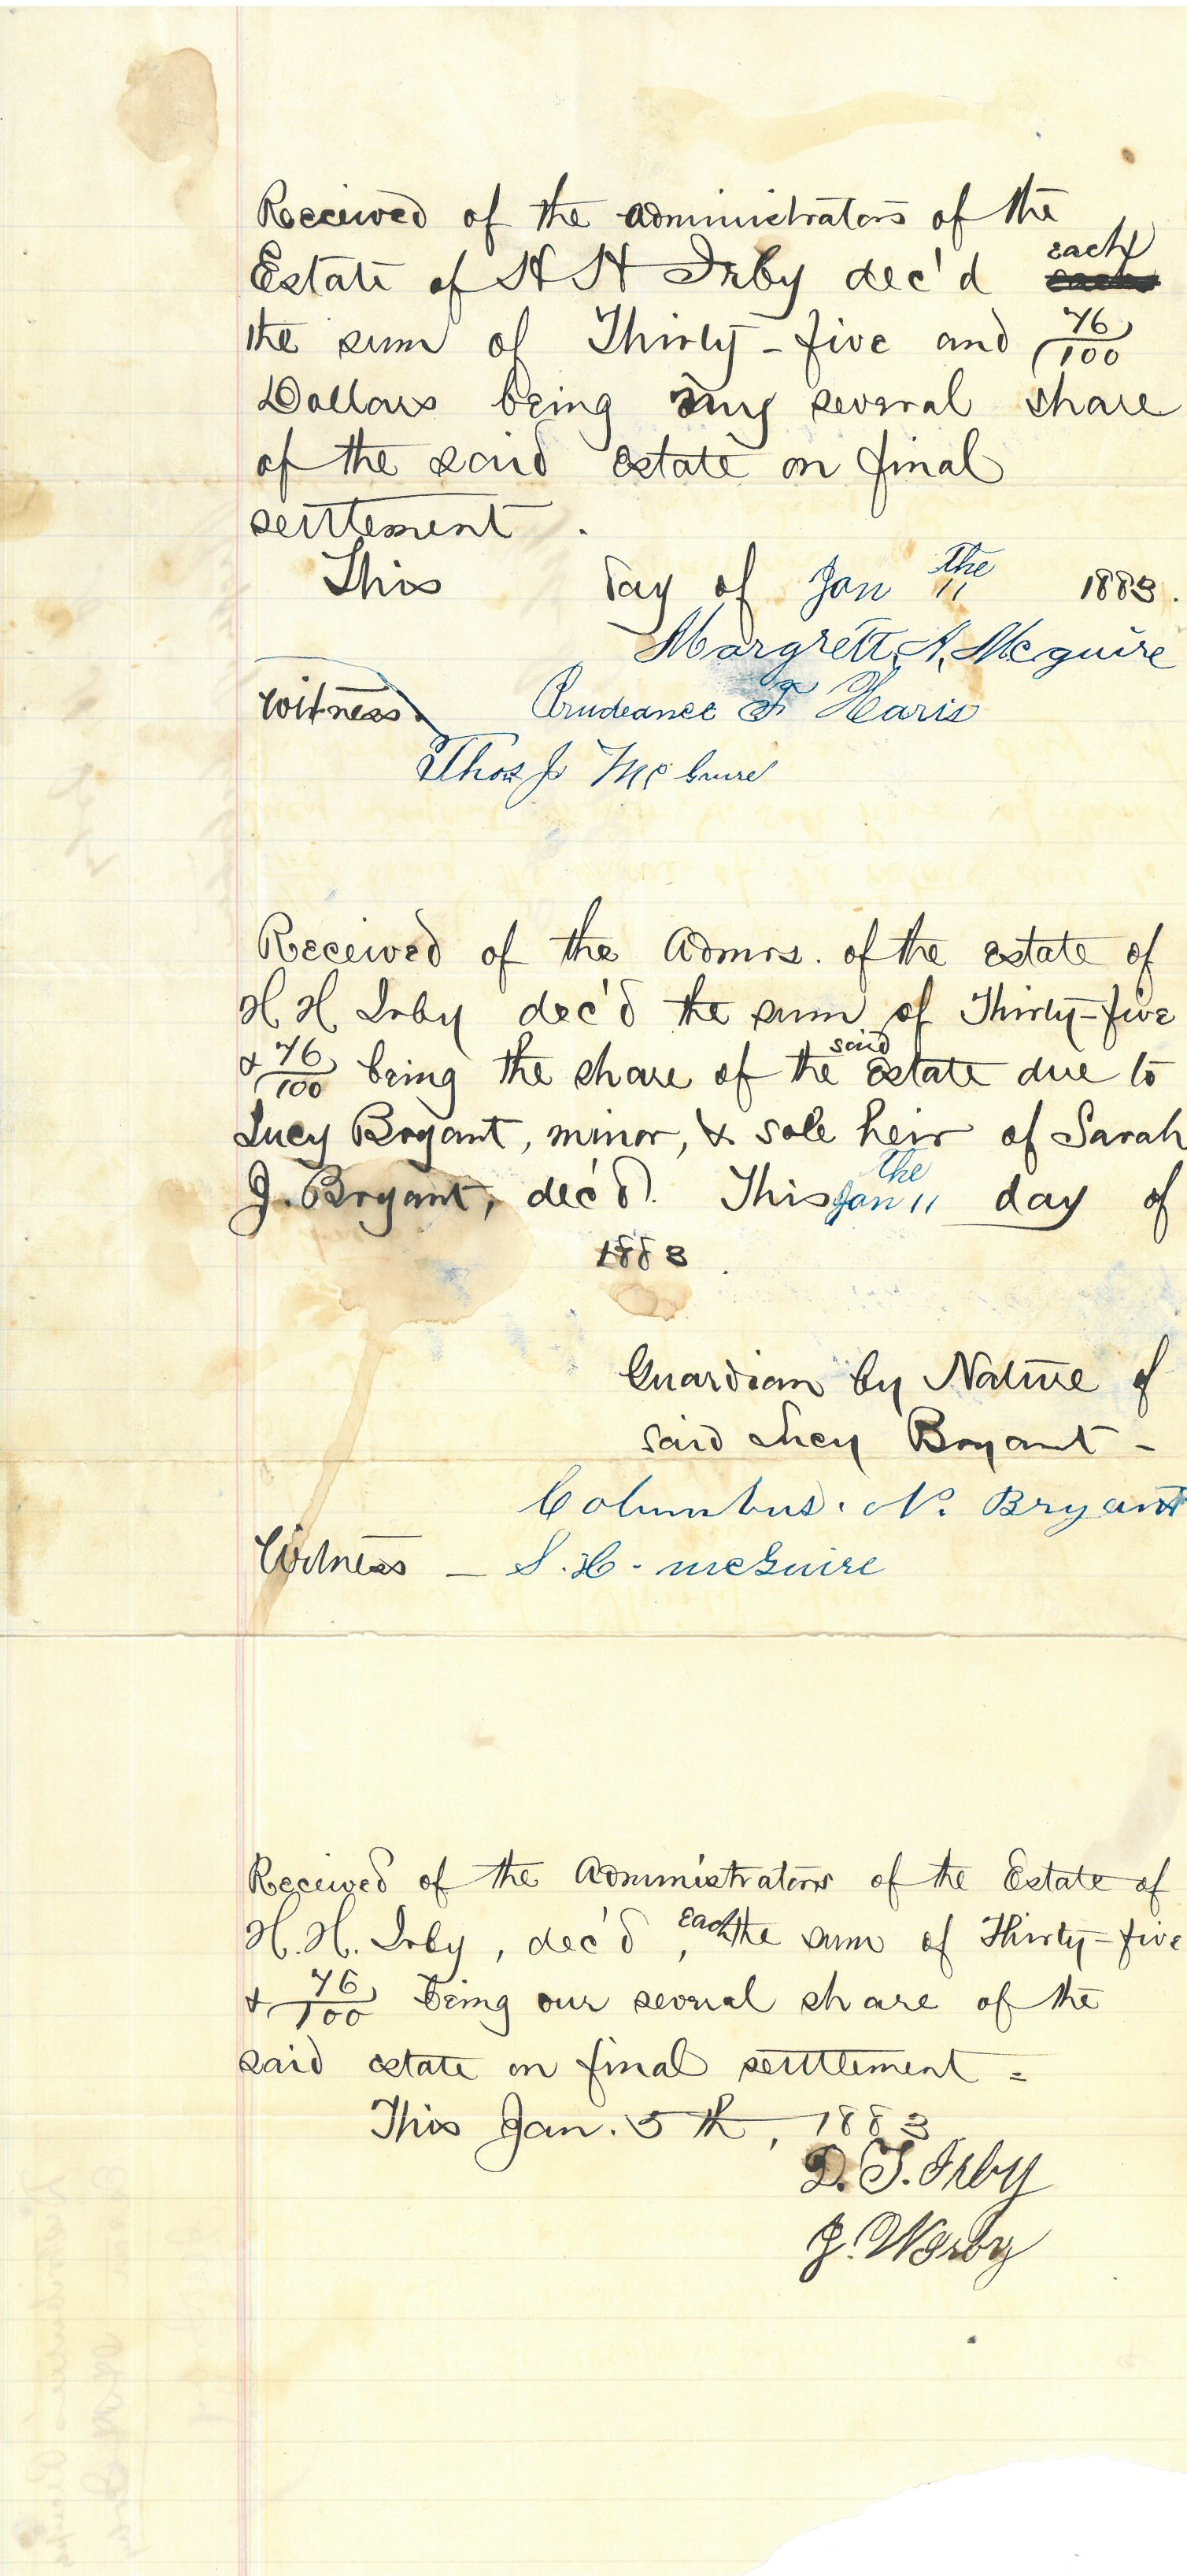 Received of the administrators of the
Estate of H H Irby dec'd each
the sum of Thirty-five and 76/100
Dollars being my several share
of the said estate on final
setttement.
This day of Jan 11 the 1883.
Margrett A. Mcguire
Witness. Prudeance F Haris
Thos J McGuire
Received of the Admrs. of the estate of
H H Irby dec'd the sum of Thirty-five
& 76/100 being the share of the said Estate due to
Lucy Bryant, minor, & sole heir of Sarah
J. Bryant, dec'd. This Jan 11 the day of
1883.
Guardian by Nature of
said Lucy Bryant -
Columbus. N. Bryant
Witness - S. H. - mcGuire
Received of the Administrators of the Estate of
H. H. Irby, dec'd, each the sum of Thirty-five
& 76/100 being our several share of the
said estate on final setttlement =
This Jan. 5th, 1883
D. T. Irby
J. W Irby